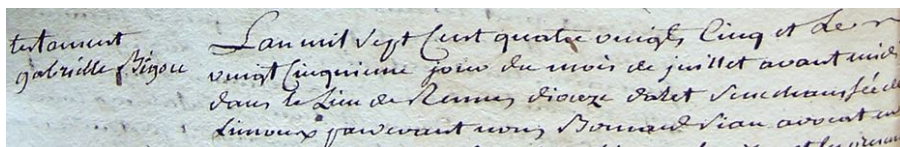 testament
gabrielle Bigou
L'an mil sept Cent quatre vingts Cinq et Le
vingt Cinquieme jour du mois de juillet avant midi
dans le Lieu de Rennes dioceze dalet Senechaussée de
Limoux pardevant nous Bernard Siau avocat en